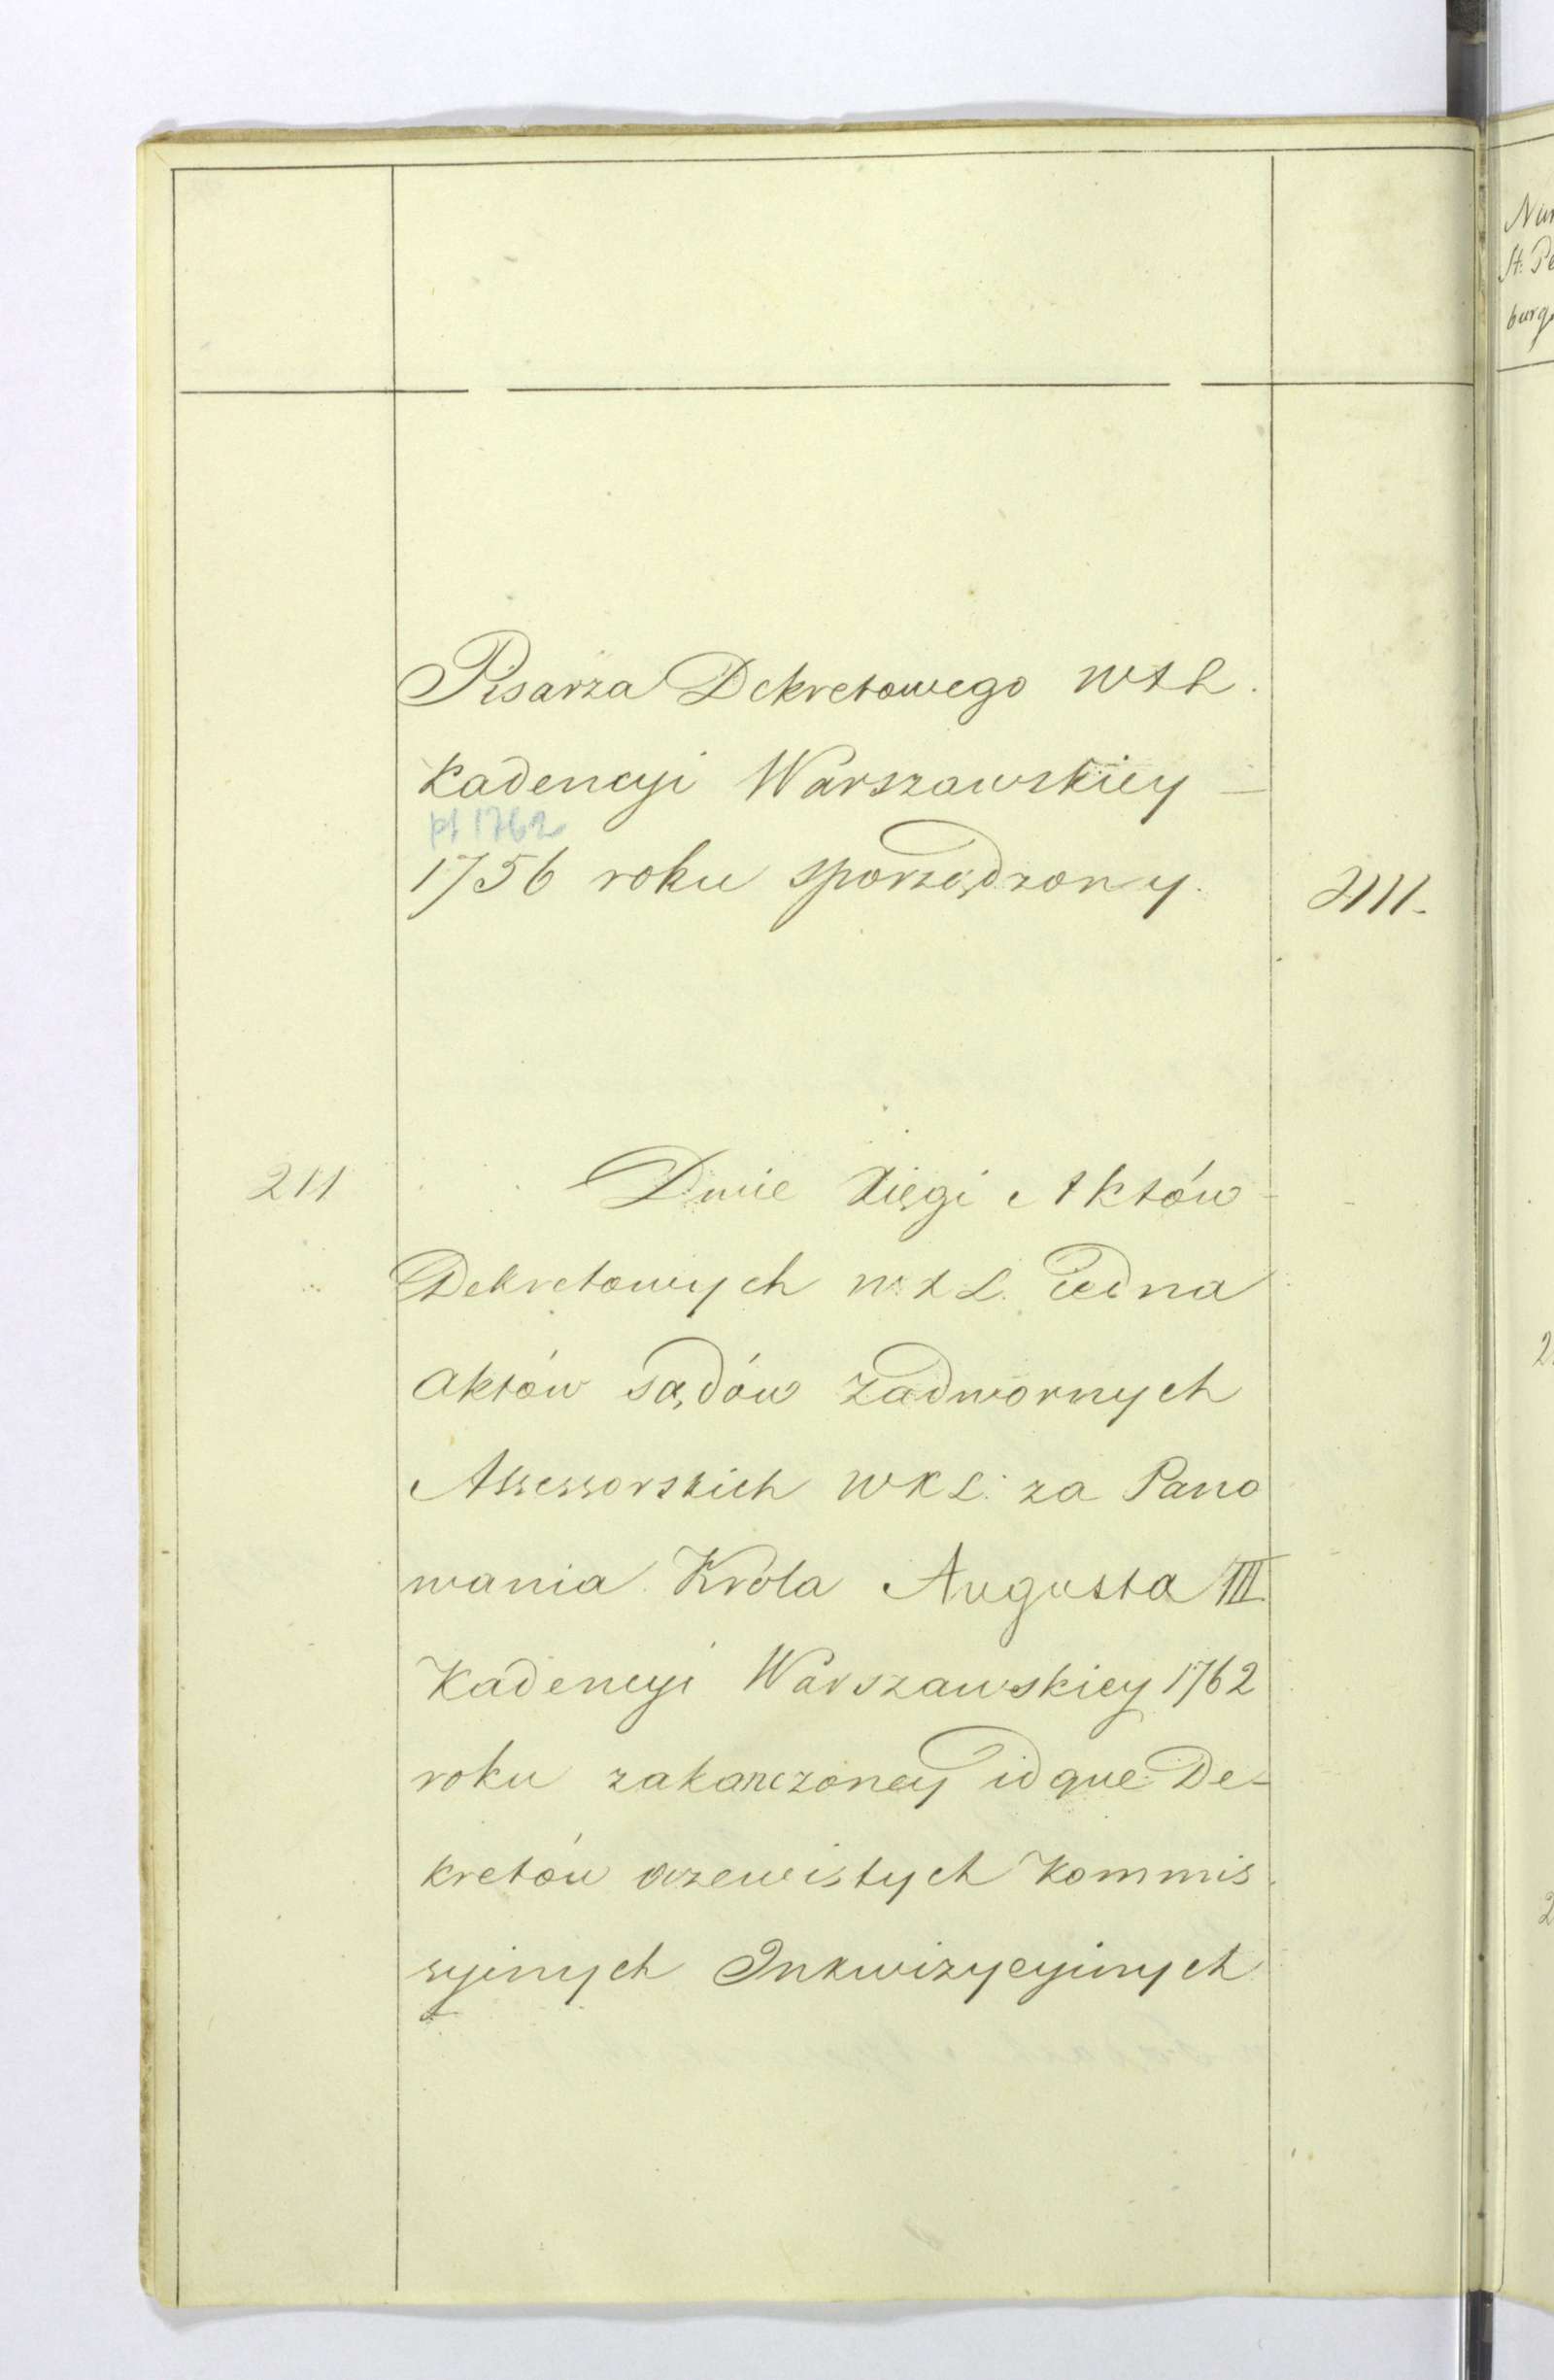 Pisarza Dekretowego WXL.
Kadencyi Warszawskiey
pt 1762
1756 roku sporządzony.
2111.
211
Dwie Xięgi Aktów
Dekretowych WXL. iedna
aktów sądów zadwornych
Assessorskich WXL. za Pano
wania Króla Augusta III
Kadencyi Warszawskiey 1762
roku zakonczoney idque De-
kretów oczewistych Kommis
syinych Inkwizycyinych